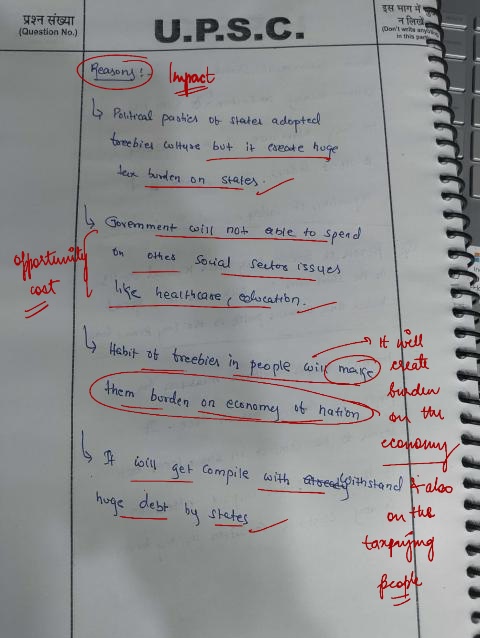 प्रश्न संख्या
(Question No.)
U.P.S.C.
इस भाग में कुछ
न लिखें
(Don't write anything
in this part)
Reasons :-
Impact
↳ Political parties of states adopted
freebies culture but it create huge
tax burden on states.
↳ Government will not able to spend
on other social sector issues
like healthcare, education.
opportunity
cost
↳ Habit of freebies in people will make
them burden on economy of nation
It will
create
burden
on the
economy
& also
on the
taxpaying
people
↳ It will get compile with already withstand
huge debt by states